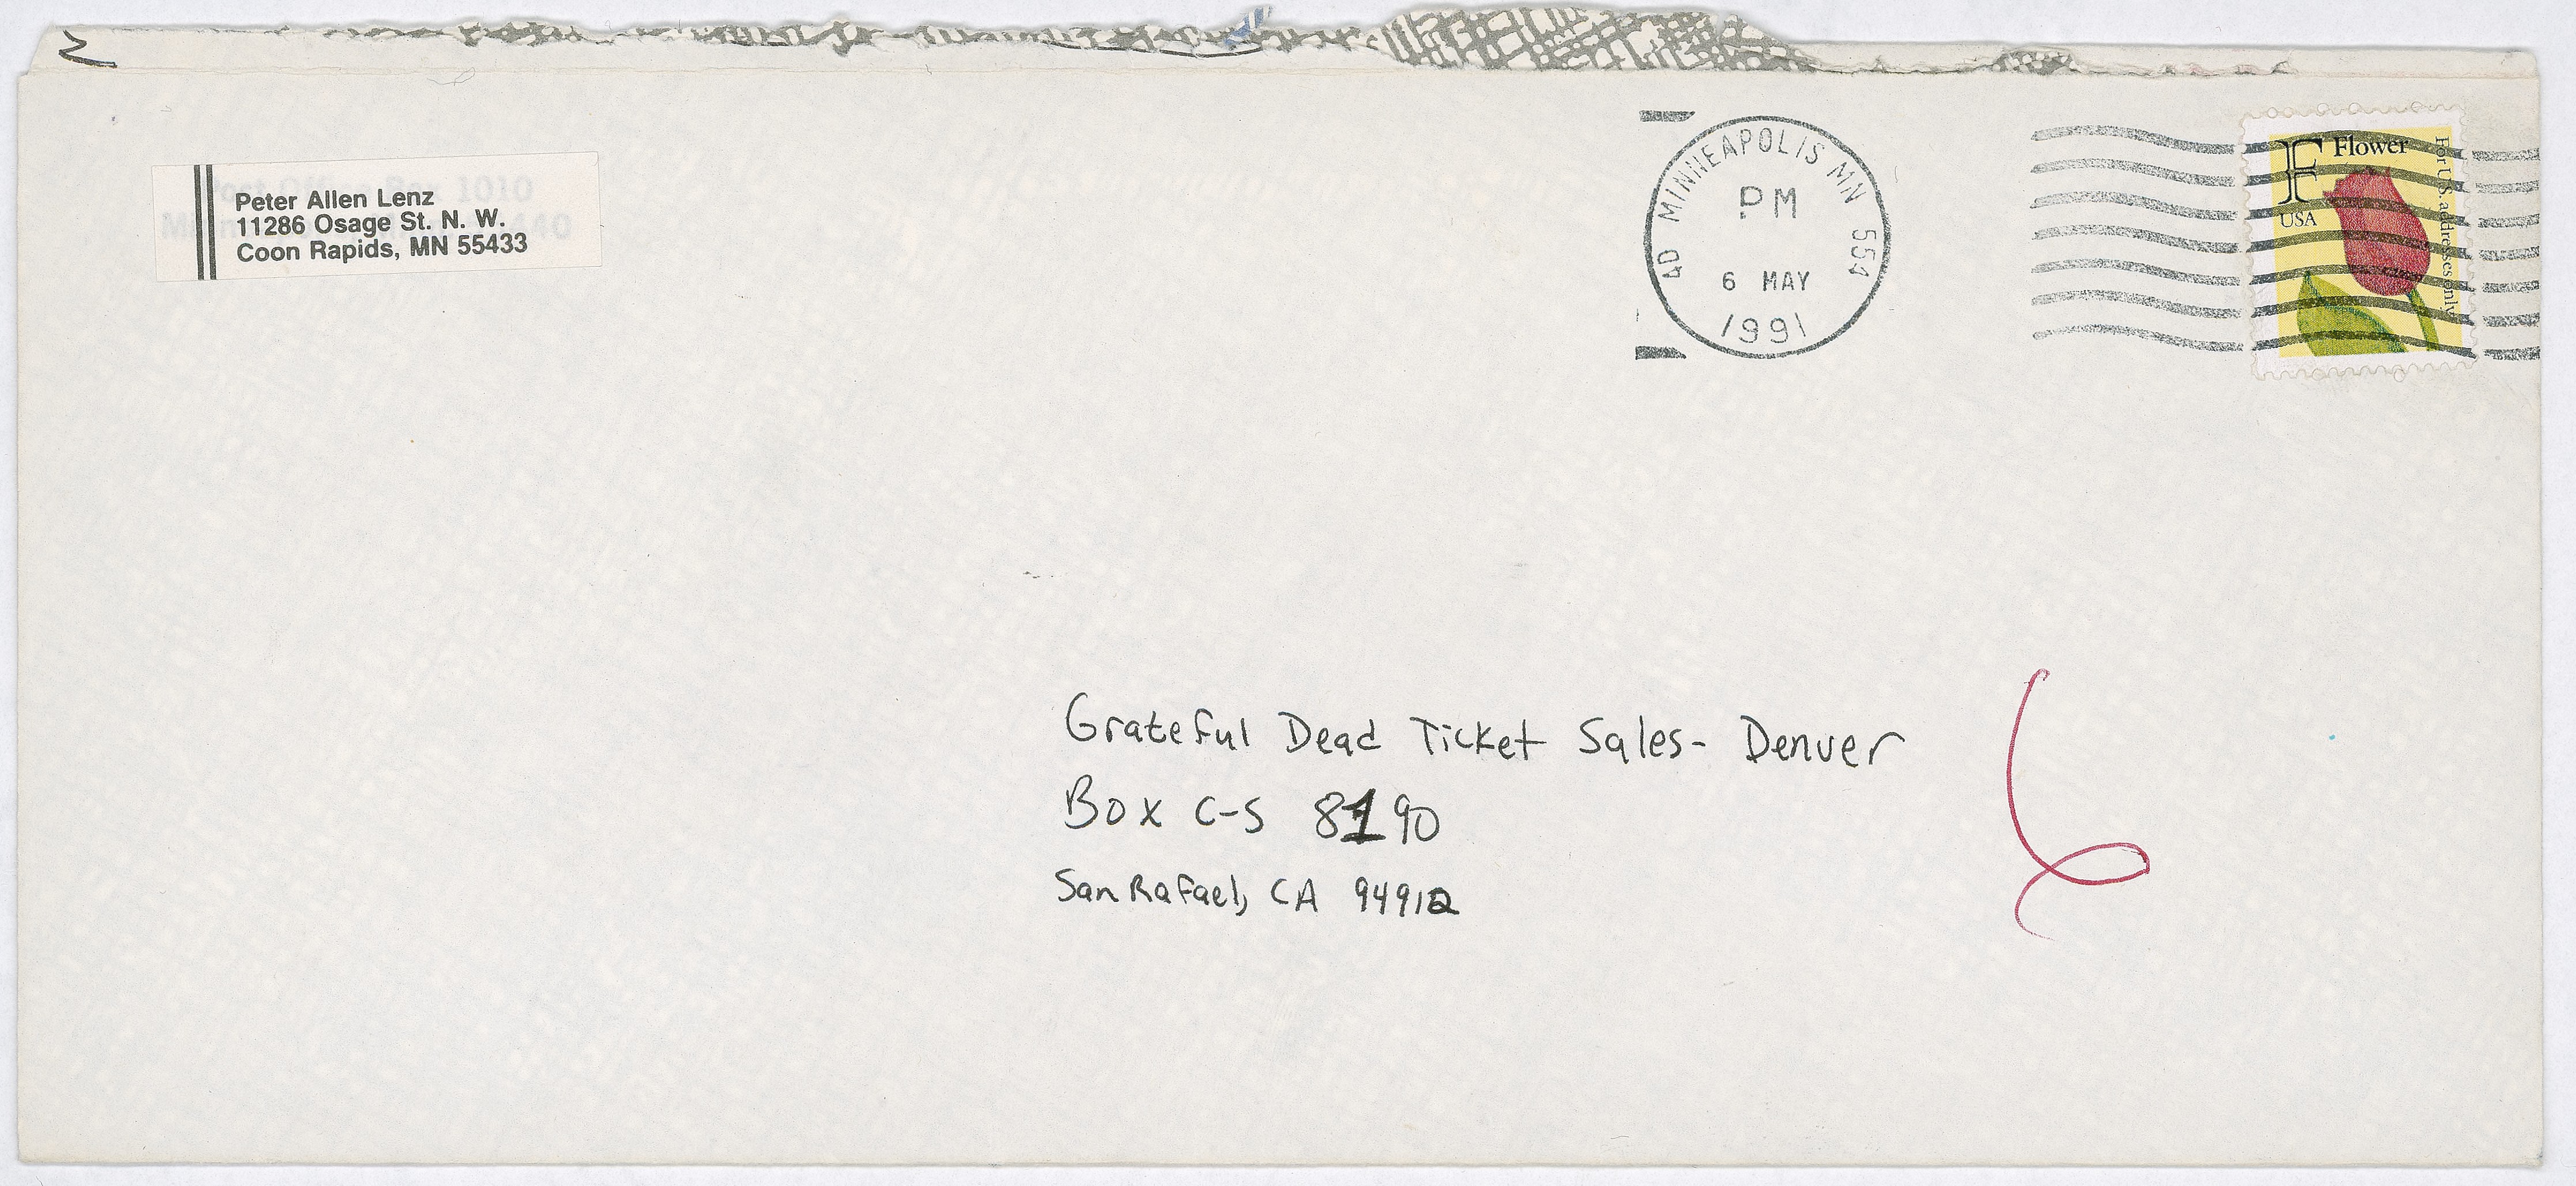 Peter Allen Lenz
11286 Osage St. N. W.
Coon Rapids, MN 55433
MINNEAPOLIS MN 554
PM
6 MAY
1991
F Flower
USA
For U.S. addresses only
Grateful Dead Ticket Sales- Denver
Box C-S 8190
San Rafael, CA 94912